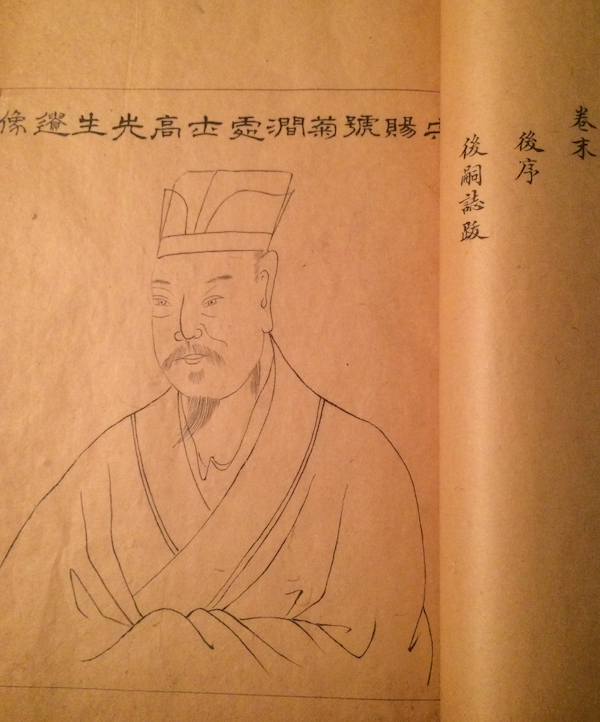 卷末
後序
後嗣誌跋
賜號菊澗處士高先生遺像